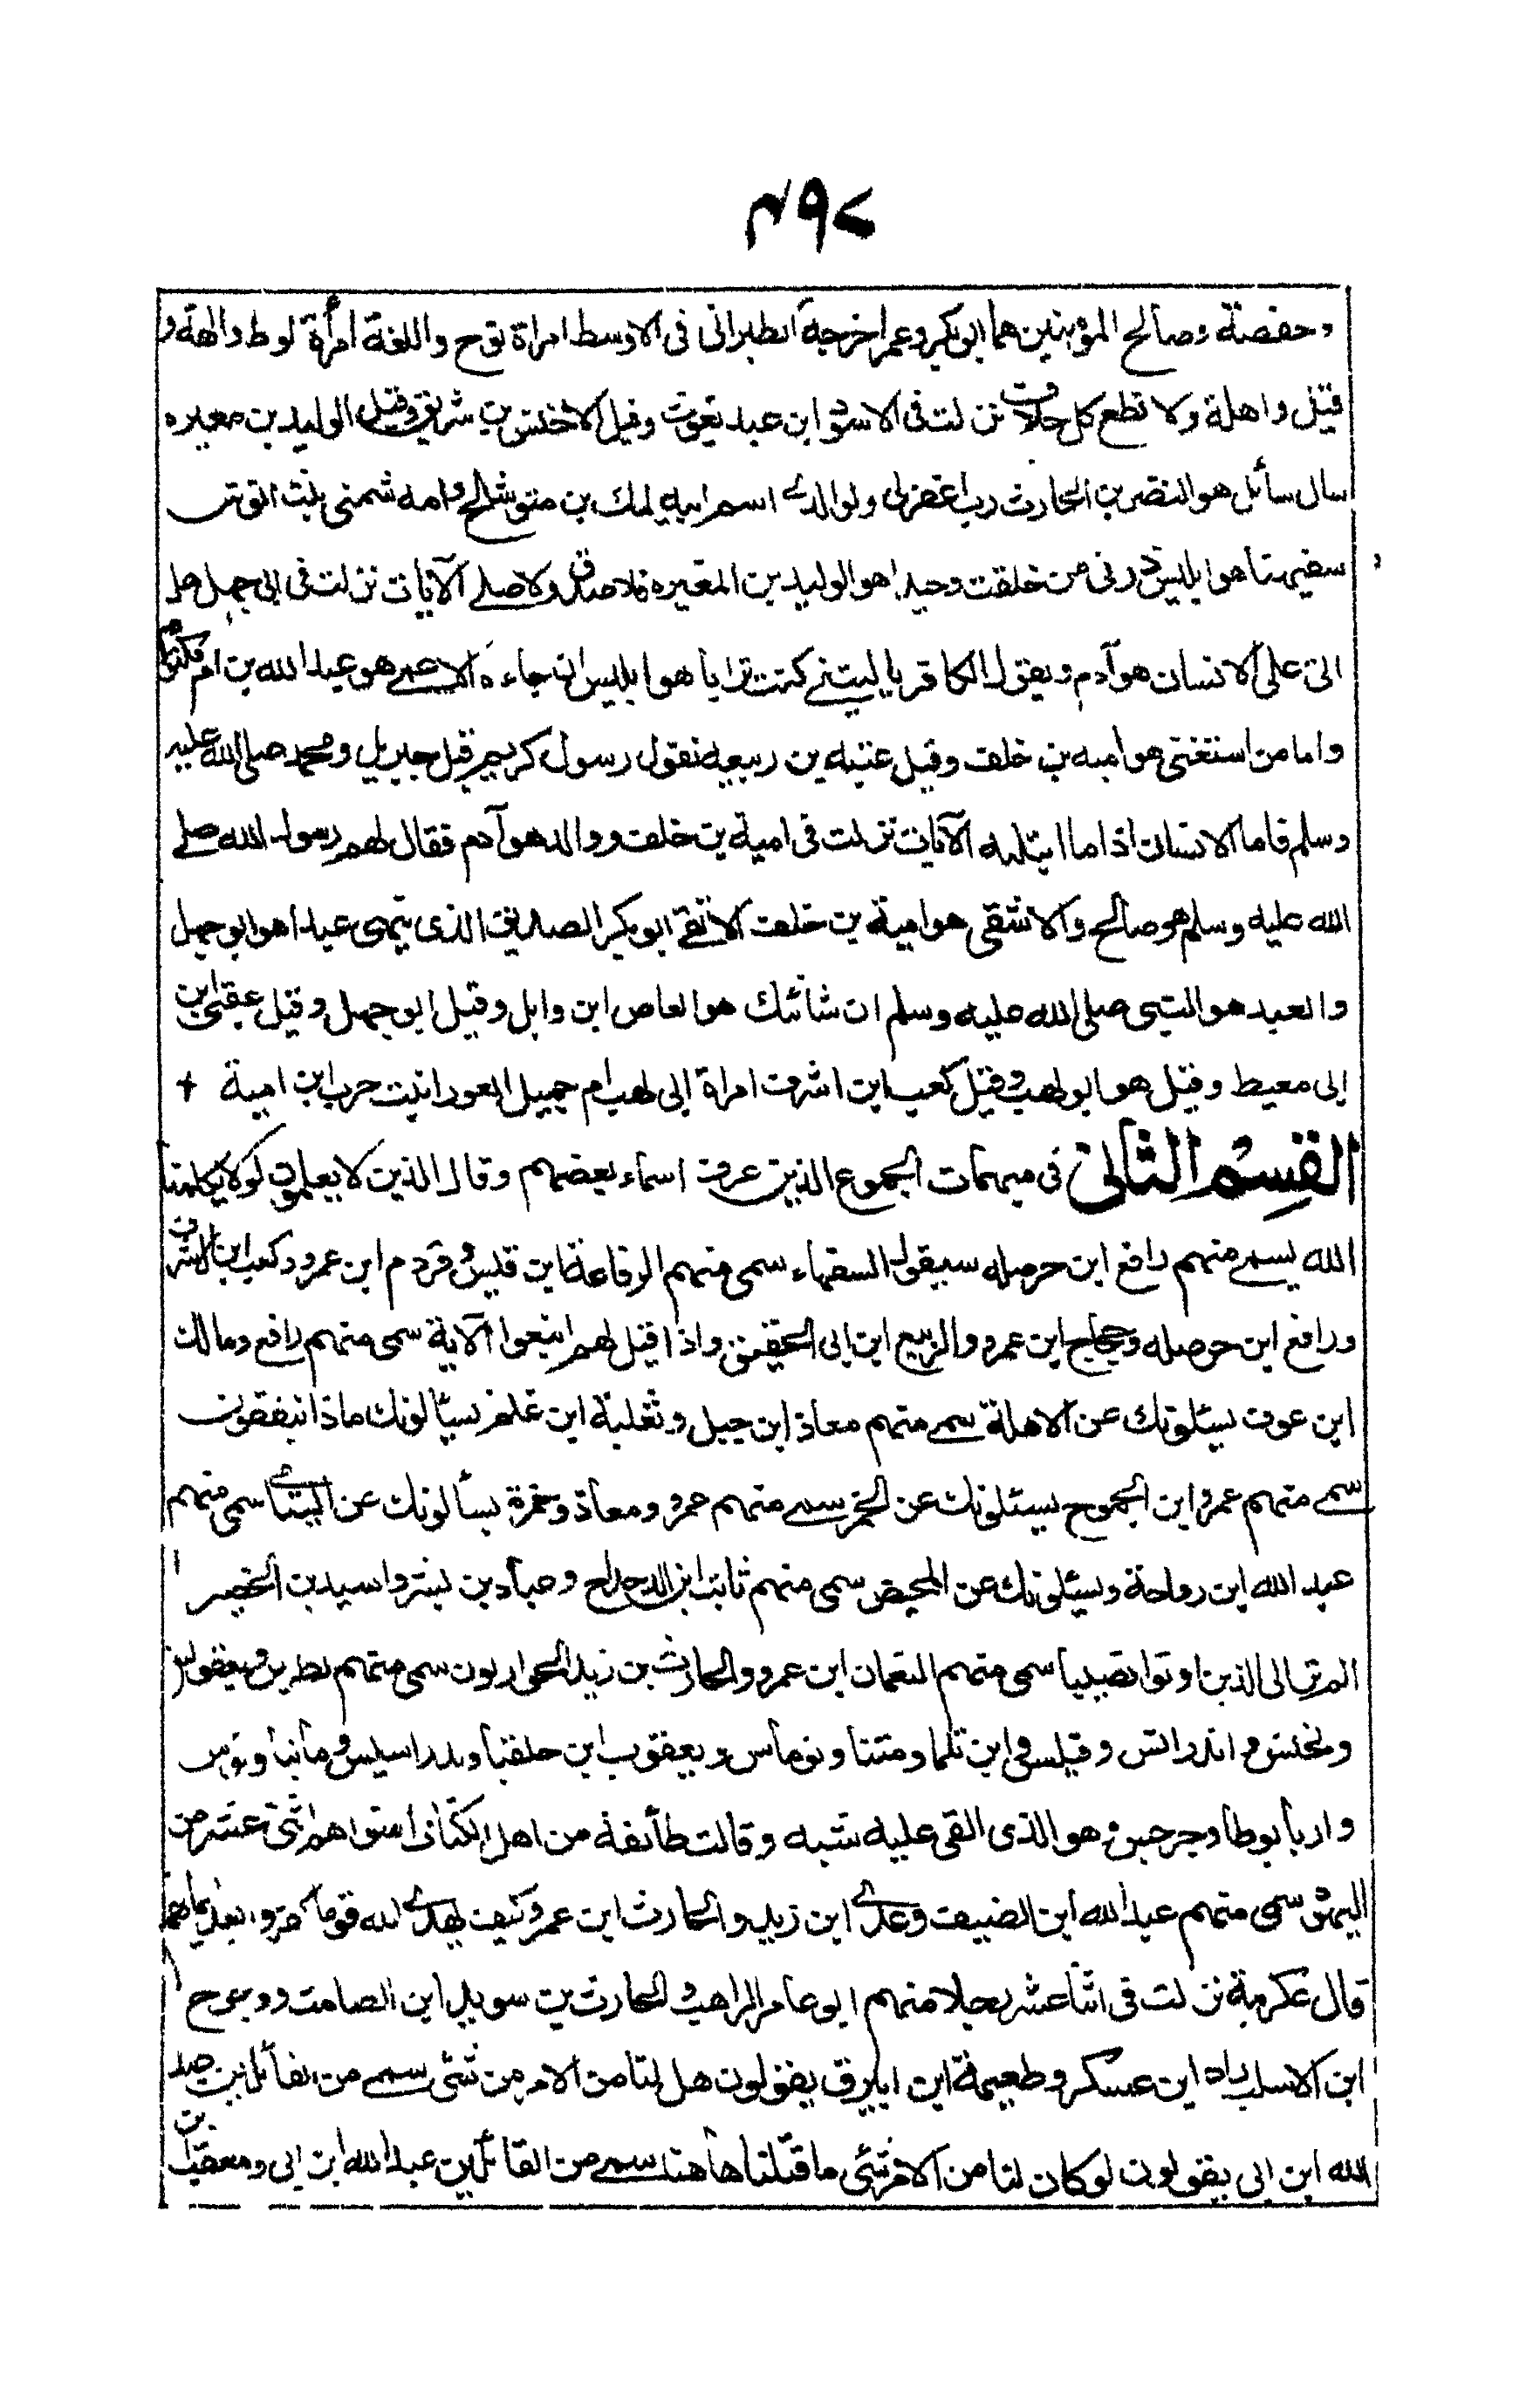 ٤٩٧
وحفصة وصالح المؤمنين هما ابوبكر وعمر اخرجه الطبرانى فى الاوسط امراة نوح والغة امرأة لوط والهة و
قيل واهلة ولا تطع كل حلاف نزلت فى الاسود ابن عبد يغوث وقيل الاخنس بن شريق وقيل الوليد بن مغيره
سال سائل هو النضر بن الحارث رب اغفرلى ولوالدى اسم ابيه لمك بن متوشالح وامه شمنى بنت انوش
سفيهنا هو ابليس ذرنى من خلقت وحيدا هو الوليد بن المغيره فلا صدق ولا صلى الآيات نزلت فى ابى جهل هل
اتى على الانسان هو آدم ويقول الكافر يا ليتنى كنت ترابا هو ابليس ان جاءه الاعمى هو عبد الله بن ام مكتوم
واما من استغنى هو اميه بن خلف وقيل عتبه بن ربيعه لقول رسول كريم قيل جبريل ومحمد صلى الله عليه
وسلم فاما الانسان اذا ما ابتله الآيات نزلت فى امية بن خلف ووالد هو آدم فقال لهم رسول الله صلى
الله عليه وسلم هو صالح والاشقى هو امية بن خلف الاتقى ابوبكر الصديق الذى ينهى عبدا هو ابوجهل
والعبد هو النبى صلى الله عليه وسلم ان شانئك هو العاص ابن وايل وقيل ابوجهل وقيل عقبى ابن
ابى معيط وقيل هو ابولهب وقيل كعب ابن اشرف امراة ابى لهب ام جميل العورا بنت حرب ابن امية +
القسم الثانى فى مبهمات الجموع الذين عرف اسماء بعضهم وقال الذين لا يعلمون لولا يكلمنا
الله يسمى منهم رافع ابن حرمله سيقول السفهاء سمى منهم الرفاعة ابن قيس وقردم ابن عمرو وكعب ابن الاشرف
ورافع ابن حرمله وحجاج ابن عمرو والربيع ابن ابى الحقيق واذا قيل لهم اتبعوا الآية سمى منهم رافع ومالك
ابن عوف يسئلونك عن الاهلة سمى منهم معاذ ابن جبل وثعلبة ابن غلم يسألونك ماذا ينفقون
سمى منهم عمرو ابن الجموح يسئلونك عن الخمر سمى منهم عمر ومعاذ وحمزة يسألونك عن اليتامى سمى منهم
عبد الله ابن رواحة ويسئلونك عن المحيض سمى منهم ثابت ابن الدحداح وعباد بن بشر واسيد بن الخضير
الم تر الى الذين اوتوا نصيبا سمى منهم النعمان ابن عمرو والحارث بن زيد الحواريون سمى منهم بطرس ويعقوبس
ويحنس واندراتس وقيلس وابن تلما ومتنا وتوماس ويعقوب ابن حلقيا وبدراسيس وماتيا وتوس
واريابوطا وجرجس وهو الذى القى عليه شبه وقالت طائفة من اهل الكتاب امنوا هم اثنى عشر من
اليهود سمى منهم عبد الله ابن الضيف وعدى ابن زيد والحارث ابن عمرو كيف يهدى الله قوما كفروا بعد ايمانهم
قال عكرمة نزلت فى اثنا عشر رجلا منهم ابو عامر الراهب والحارث بن سويد ابن الصامت ووحوح
ابن الاسلت زاد ابن عسكر وطعيمة ابن ابيرق يقولون هل لنا من الامر من شئى سمى من القائلين عبد
الله ابن ابى يقولون لو كان لنا من الامر شئى ما قتلنا هاهنا سمى من القائلين عبد الله ابن ابى ومعقب بن